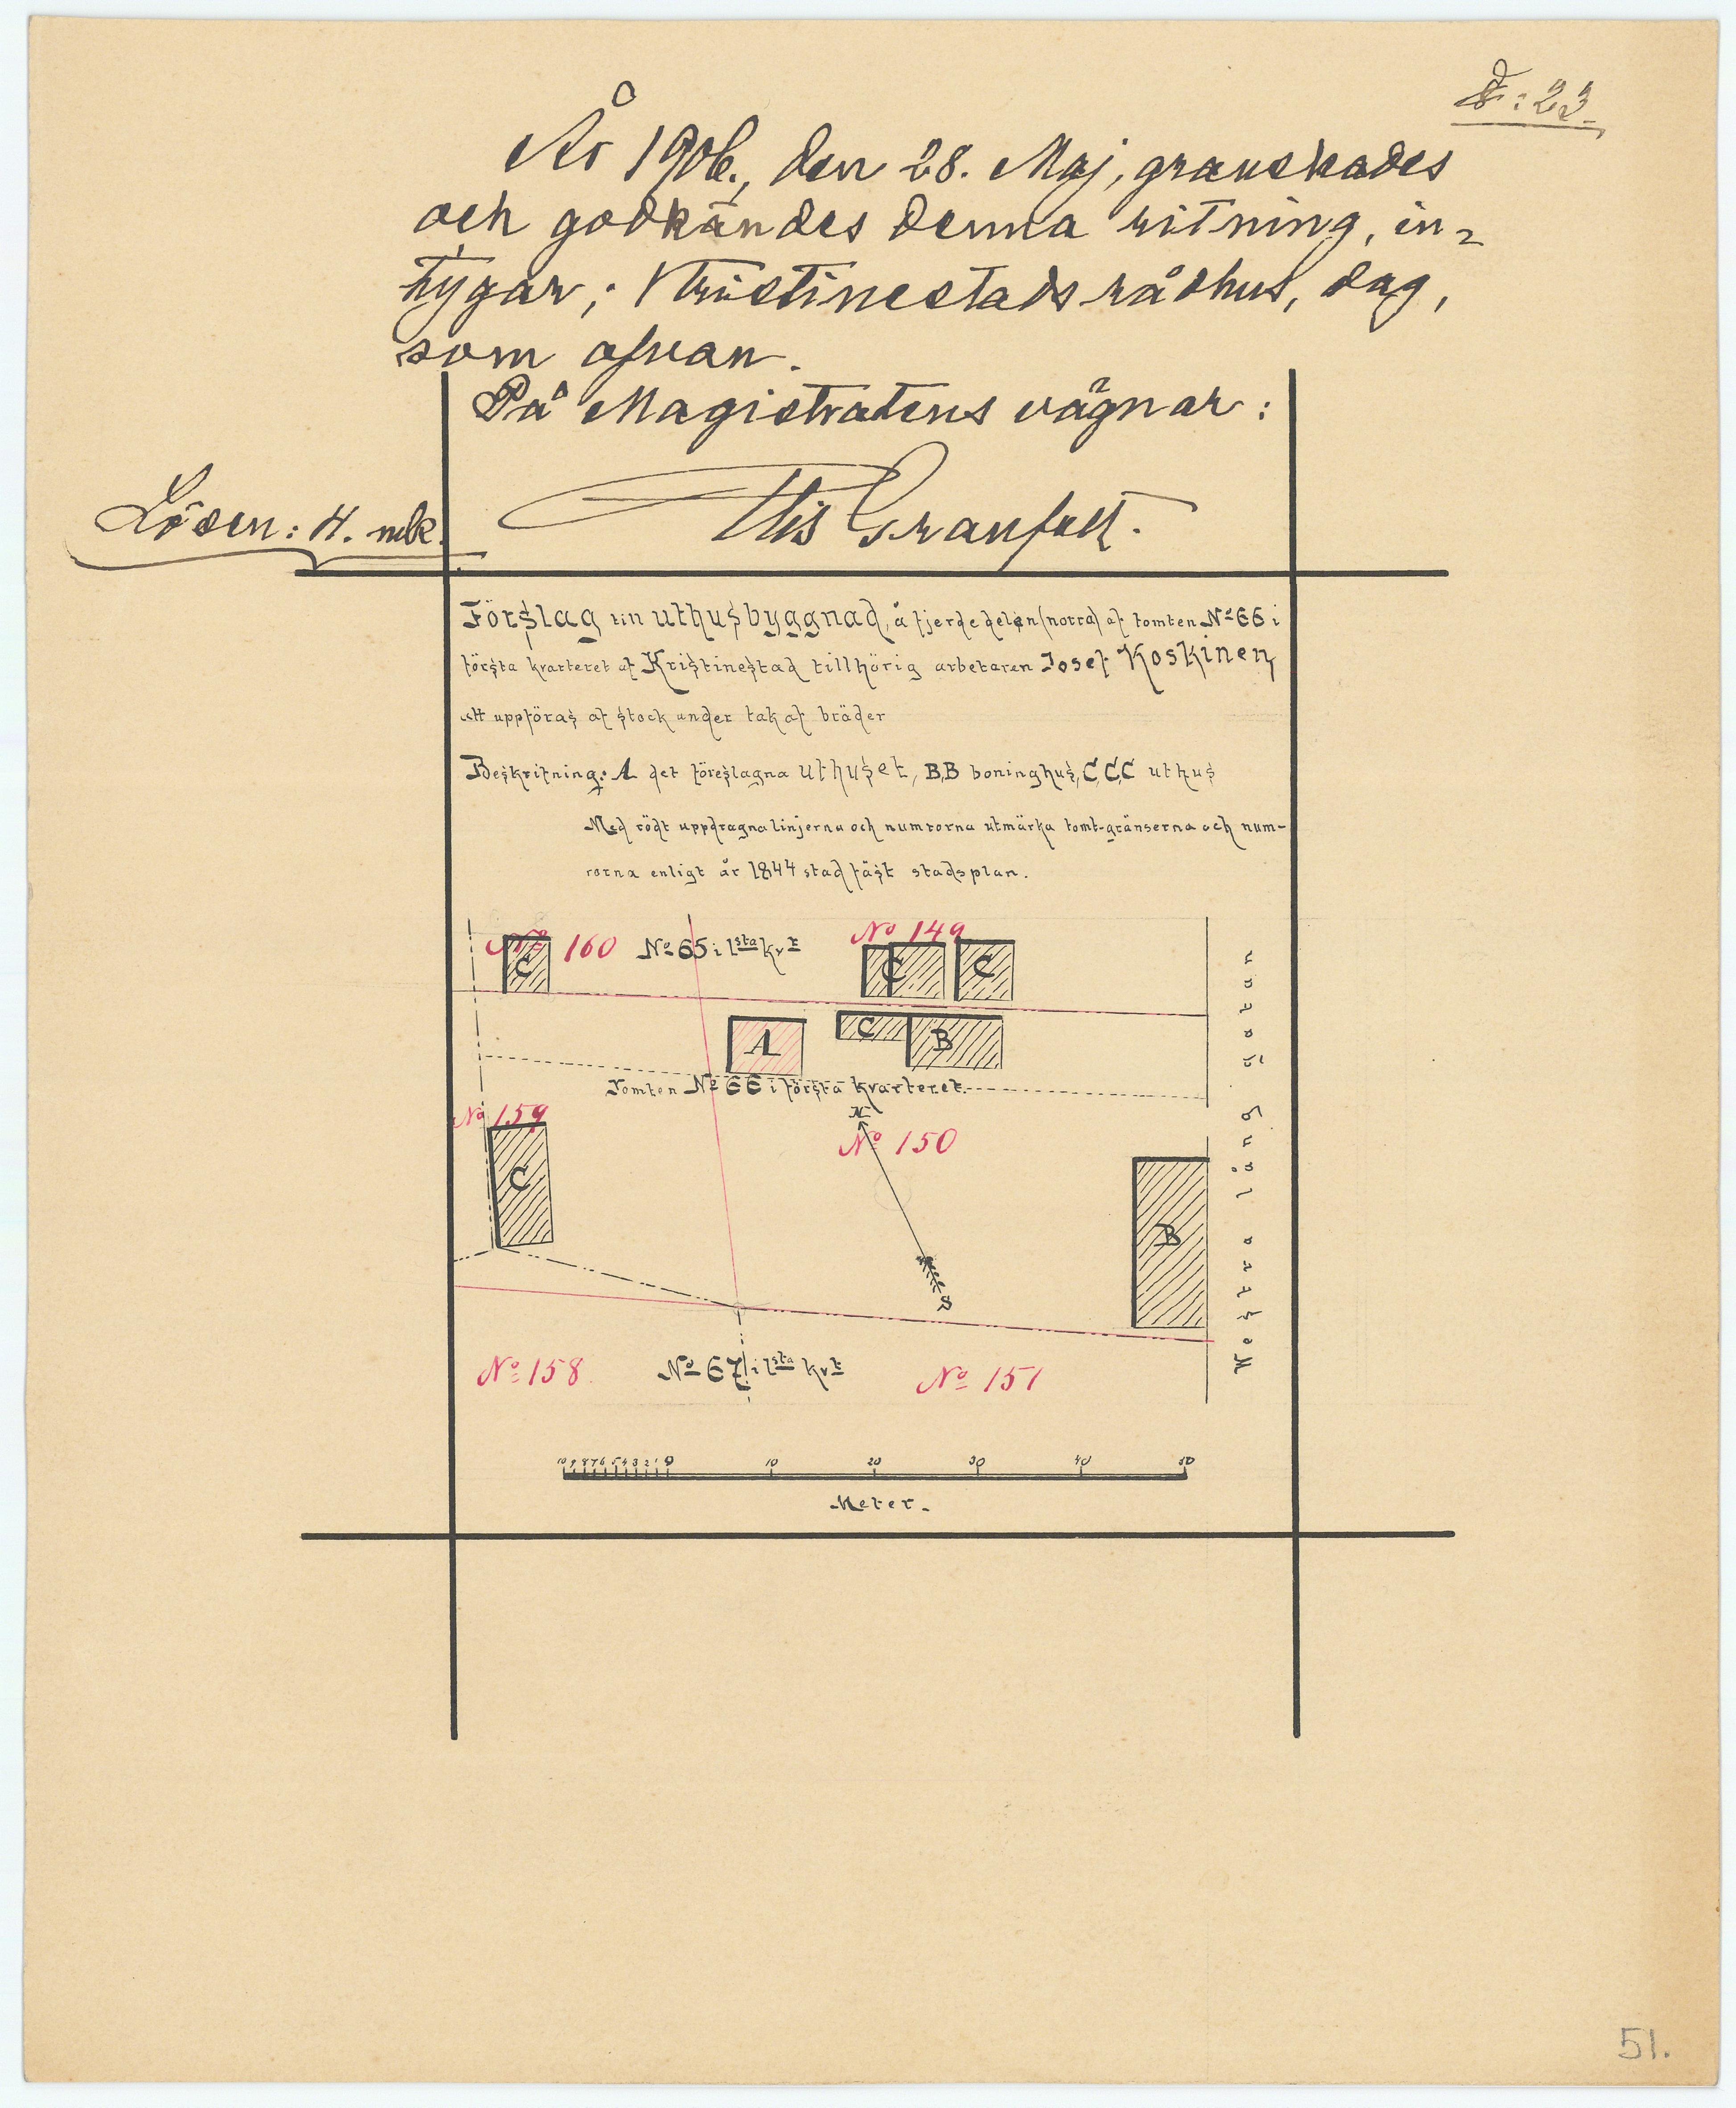 §: 23.
År 1906., den 28. Maj, granskades
och godkändes denna ritning, in-
tygar; Kristinestads rådhus, dag,
som ofvan.
På Magistratens vägnar:
Lösen: 4. mk.
Elis Granfelt.
Förslag till uthusbyggnad, å fjerdedelen (norra) af tomten No 66 i
första kvarteret af Kristinestad tillhörig arbetaren Josef Koskinen
att uppföras af stock under tak af bräder
Beskrifning: A det föreslagna uthuset, B,B boninghus, C,C,C uthus
Med rödt uppdragna linjerna och numrorna utmärka tomt-gränserna och num-
rorna enligt år 1844 stadfäst stadsplan.
No 160 No 65 i 1sta kvt No 149
C C C
A C B
Tomten No 66 i första kvarteret.
No 159
N
No 150
C
B
S
Västra långgatan
No 158 No 67 i 1sta kvt No 151
10 9 8 7 6 5 4 3 2 1 0 10 20 30 40 50
Meter.
51.